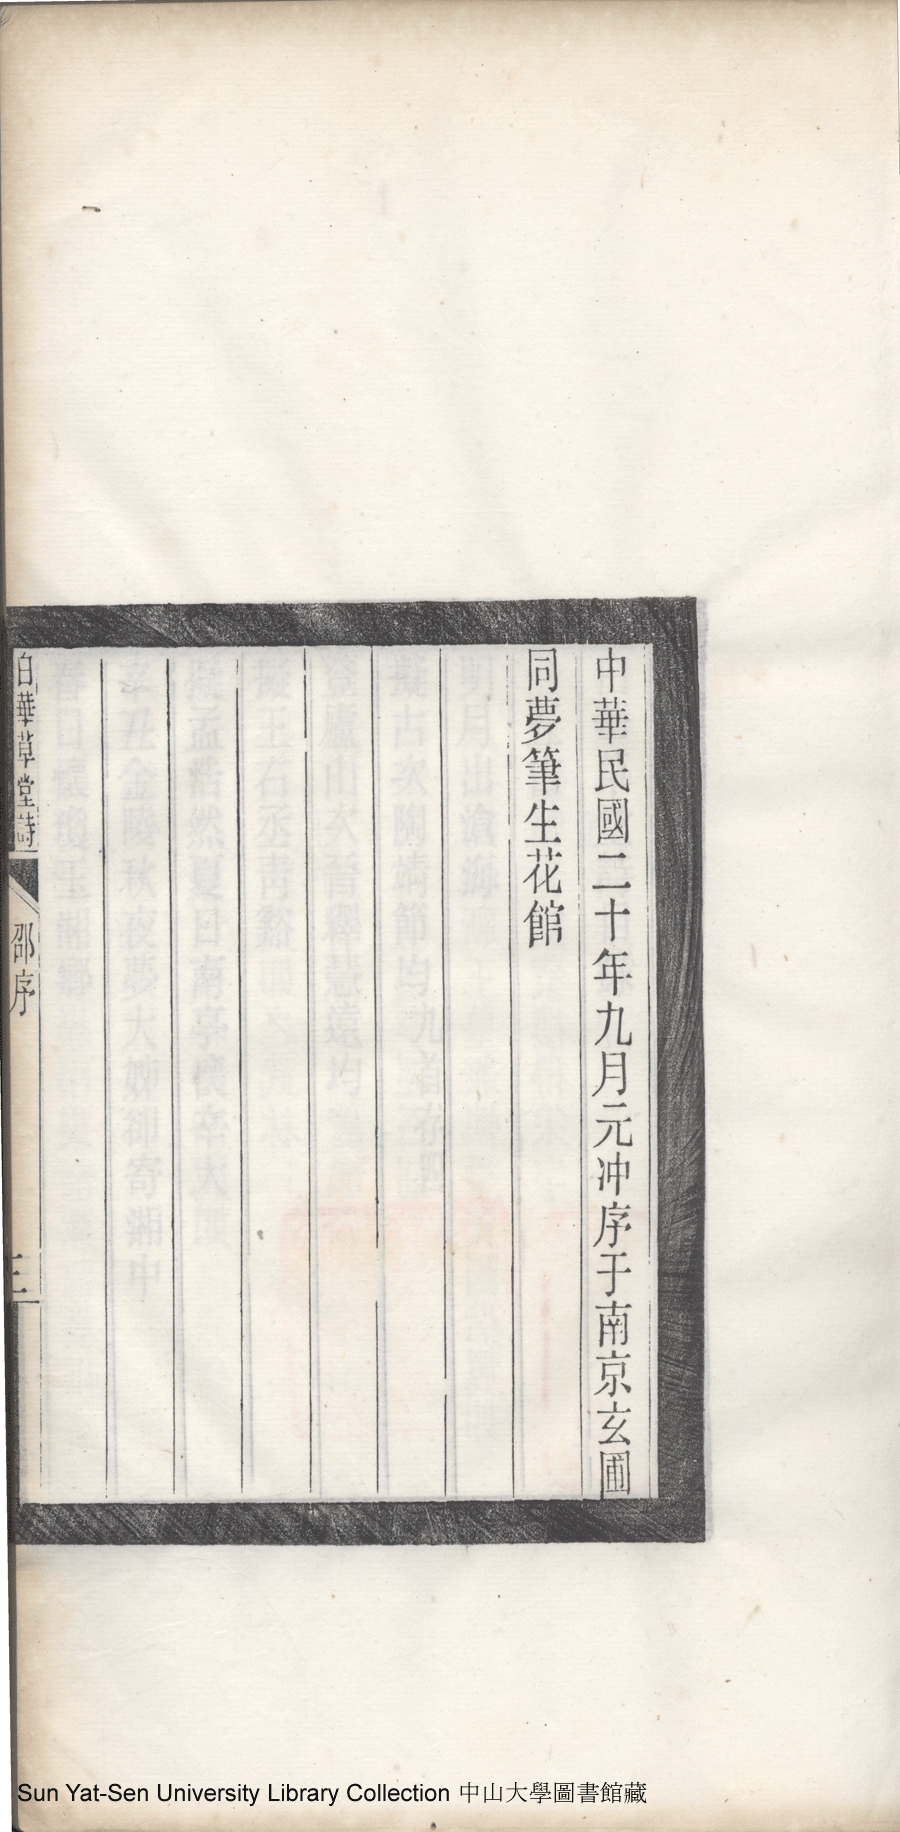 中華民國二十年九月元冲序于南京玄圃
同夢筆生花館
白華草堂詩
邵序
三
Sun Yat-Sen University Library Collection 中山大學圖書館藏